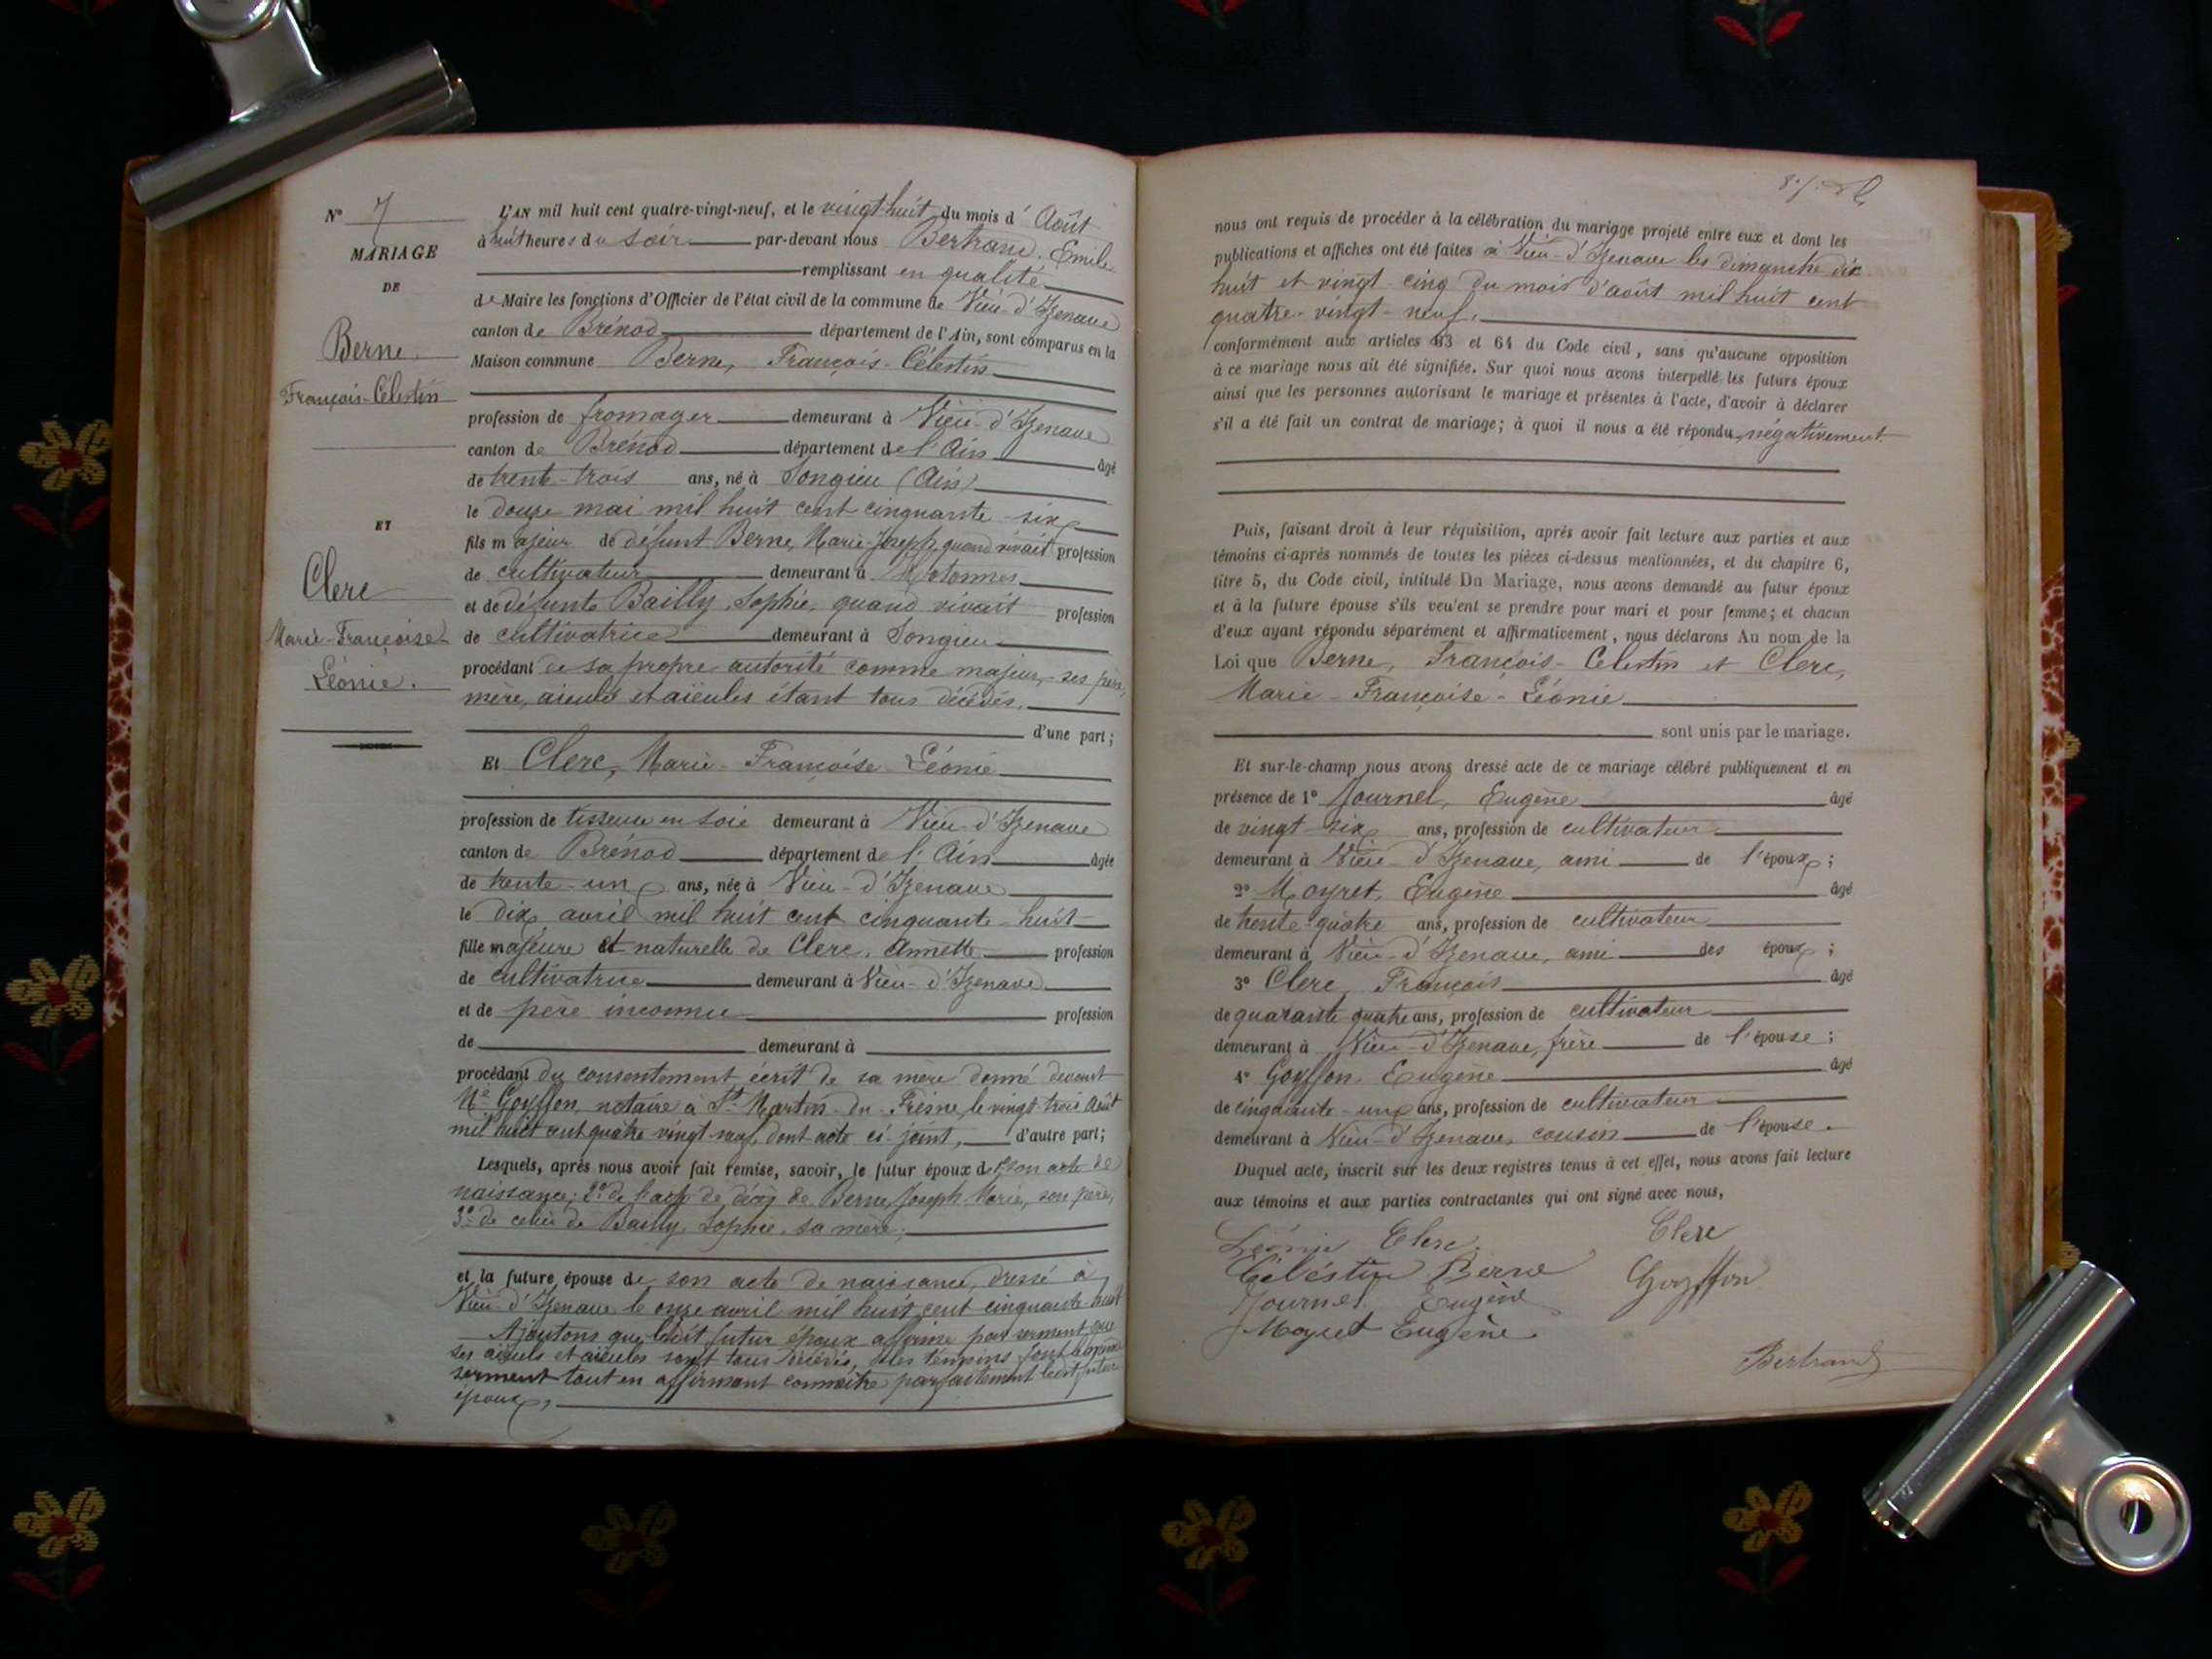 N° 7
MARIAGE
DE
Berne
François-Célestin
ET
Clerc
Marie-Françoise
Léonie.
L'AN mil huit cent quatre-vingt-neuf, et le vingt-huit du mois d' Août
à huit heures du soir par-devant nous Bertrand, Emile
remplissant en qualité
de Maire les fonctions d'Officier de l'état civil de la commune de Vieu-d'Izenave
canton de Brénod département de l'Ain, sont comparus en la
Maison commune Berne, François-Célestin
profession de fromager demeurant à Vieu-d'Izenave
canton de Brénod département de l'Ain âgé
de trente-trois ans, né à Songieu (Ain)
le douze mai mil huit cent cinquante-six
fils majeur de défunt Berne, Marie-Joseph, quand vivait profession
de cultivateur demeurant à Hotonnes
et de défunte Bailly, Sophie, quand vivait profession
de cultivatrice demeurant à Songieu
procédant de sa propre autorité comme majeur, ses père,
mère, aieuls et aieules étant tous décédés.
d'une part;
Et Clerc, Marie-Françoise Léonie
profession de tisseuse en soie demeurant à Vieu-d'Izenave
canton de Brénod département de l'Ain âgée
de trente-un ans, née à Vieu-d'Izenave
le dix avril mil huit cent cinquante-huit
fille majeure et naturelle de Clerc, Annette profession
de cultivatrice demeurant à Vieu-d'Izenave
et de père inconnu profession
de demeurant à
procédant du consentement écrit de sa mère donné devant
Me Goyffon, notaire à St Martin-du-Frêne, le vingt-trois Août
mil huit cent quatre vingt-neuf, dont acte ci-joint, d'autre part;
Lesquels, après nous avoir fait remise, savoir, le futur époux de 1° son acte de
naissance; 2° de l'acte de décès de Berne, Joseph Marie, son père,
3° de celui de Bailly, Sophie, sa mère;
et la future épouse de son acte de naissance, dressé à
Vieu-d'Izenave le onze avril mil huit cent cinquante-huit
Ajoutons que ledit futur époux affirme par serment que
ses aieuls et aieules sont tous décédés, les témoins font le même
serment tout en affirmant connaître parfaitement ledit futur
époux,
nous ont requis de procéder à la célébration du mariage projeté entre eux et dont les
publications et affiches ont été faites à Vieu-d'Izenave les dimanche dix
huit et vingt-cinq du mois d'août mil huit cent
quatre-vingt-neuf,
conformément aux articles 63 et 64 du Code civil, sans qu'aucune opposition
à ce mariage nous ait été signifiée. Sur quoi nous avons interpellé les futurs époux
ainsi que les personnes autorisant le mariage et présentes à l'acte, d'avoir à déclarer
s'il a été fait un contrat de mariage; à quoi il nous a été répondu négativement.
Puis, faisant droit à leur réquisition, après avoir fait lecture aux parties et aux
témoins ci-après nommés de toutes les pièces ci-dessus mentionnées, et du chapitre 6,
titre 5, du Code civil, intitulé Du Mariage, nous avons demandé au futur époux
et à la future épouse s'ils veulent se prendre pour mari et pour femme; et chacun
d'eux ayant répondu séparément et affirmativement, nous déclarons Au nom de la
Loi que Berne, François-Célestin et Clerc,
Marie-Françoise-Léonie
sont unis par le mariage.
Et sur-le-champ nous avons dressé acte de ce mariage célébré publiquement et en
présence de 1° Journel, Eugène âgé
de vingt-six ans, profession de cultivateur
demeurant à Vieu-d'Izenave, ami de l'époux;
2° Moyret, Eugène âgé
de trente-quatre ans, profession de cultivateur
demeurant à Vieu-d'Izenave, ami des époux;
3° Clerc, François âgé
de quarante-quatre ans, profession de cultivateur
demeurant à Vieu-d'Izenave, frère de l'épouse;
4° Goyffon, Eugène âgé
de cinquante-un ans, profession de cultivateur
demeurant à Vieu-d'Izenave, cousin de l'épouse.
Duquel acte, inscrit sur les deux registres tenus à cet effet, nous avons fait lecture
aux témoins et aux parties contractantes qui ont signé avec nous,
Léonie Clerc. Clerc
Céléstin Berne Goyffon
Journel Eugène
Moyret Eugène.
Bertrand